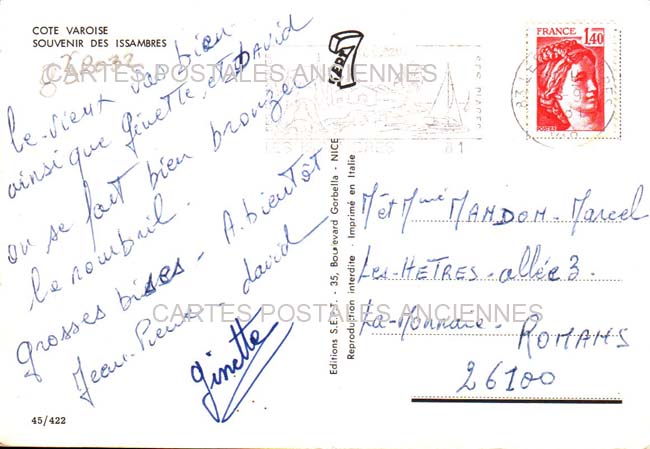 COTE VAROISE
SOUVENIR DES ISSAMBRES
CARTES POSTALES ANCIENNES
le vieux va bien
ainsi que Ginette et David
on se fait bien bronzer
le nombril.
grosses bises - A. bientôt
Jean-Pierre - david
ginette
CARTES POSTALES ANCIENNES
45/422
Editions S.E.P.T. - 35, Boulevard Gorbella - NICE
Reproduction interdite - Imprimé en Italie
FRANCE
1,40
POSTES
81
M et Mme MANDON-Marcel
Les-HETRES-allée 3.
La-Monnaie- ROMANS
26100